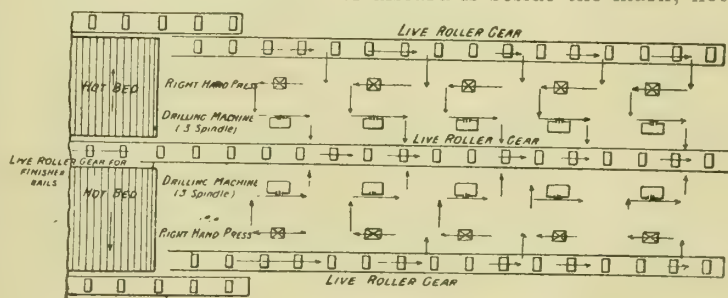 LIVE ROLLER GEAR
HOT BED
RIGHT HAND PRESS
DRILLING MACHINE
(3 Spindle)
LIVE ROLLER GEAR
LIVE ROLLER GEAR FOR
FINISHER
RAILS
HOT BED
DRILLING MACHINE
(3 Spindle)
RIGHT HAND PRESS
LIVE ROLLER GEAR